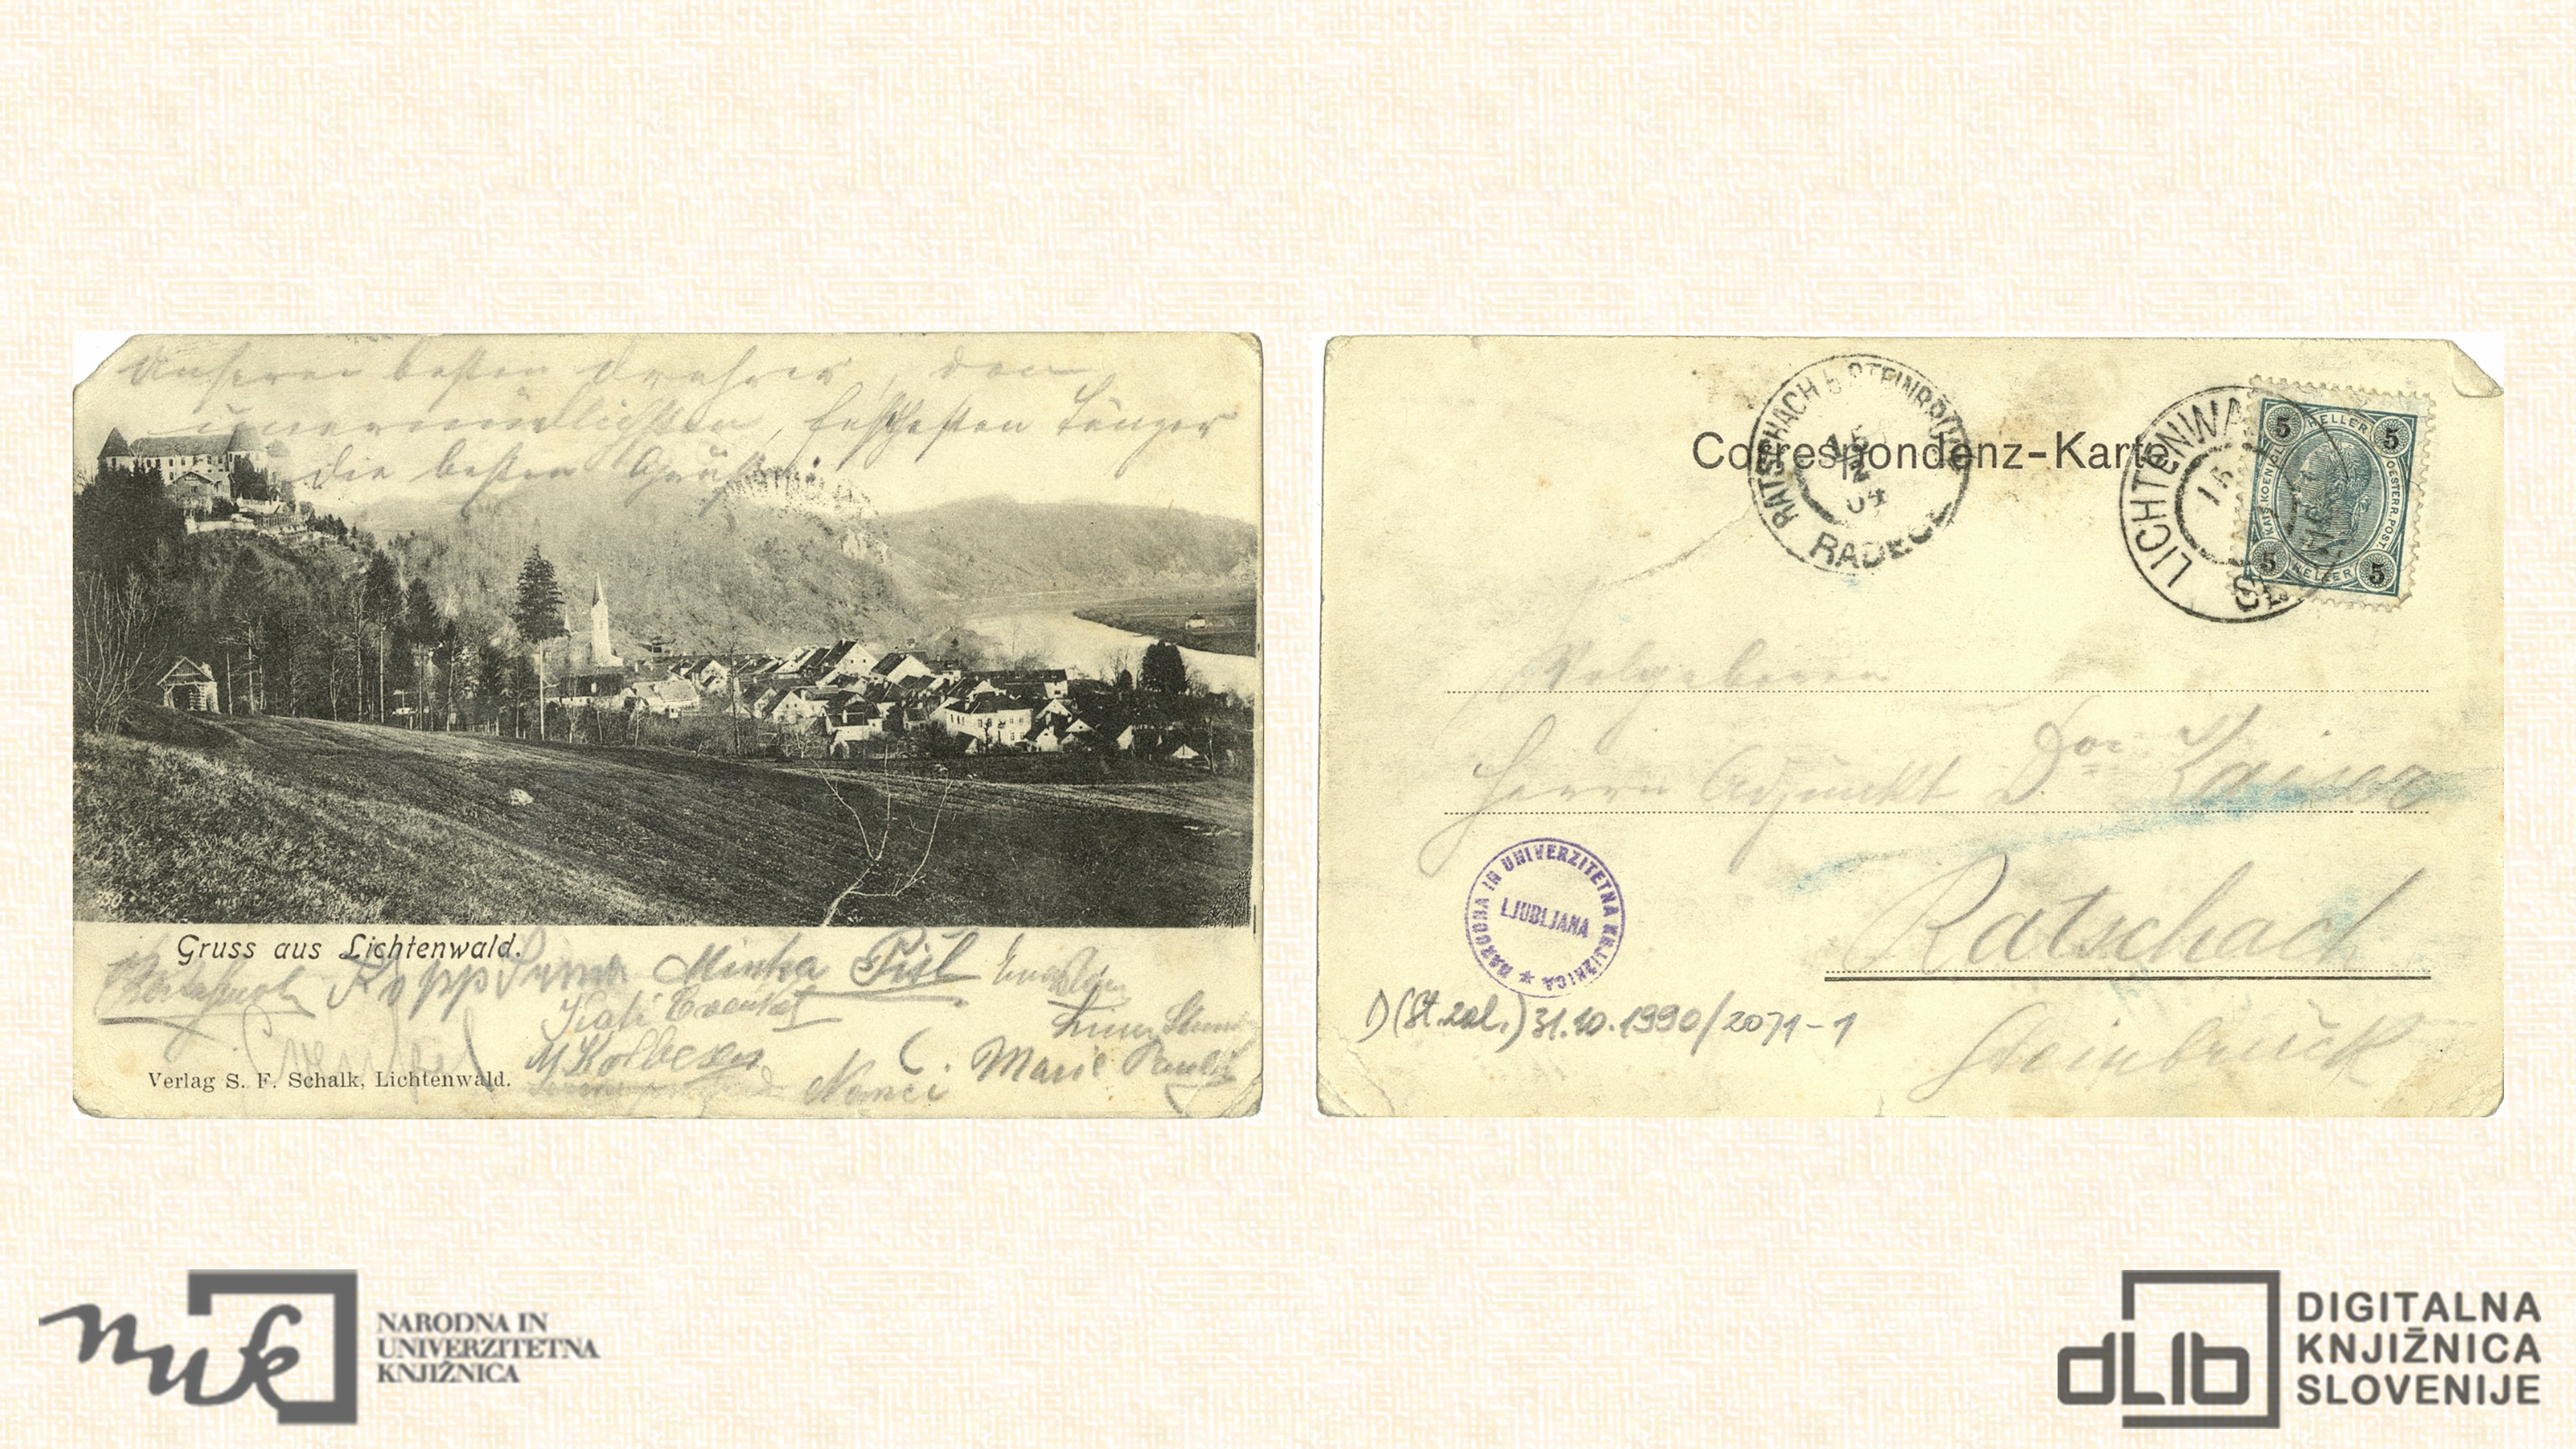 Unseren besten Dreher, den
unermüdlichsten, feschesten Tänzer
die besten Grüße
Gruss aus Lichtenwald.
Minka Pišl
Kati
Marie
Nemci
Verlag S. F. Schalk, Lichtenwald.
Correspondenz-Karte
RATSCHACH b. STEINBRÜCK
15
2
04
RADEČE
LICHTENWA
15
5 HELLER 5
KAIS. KOENIGL. OESTERR. POST
5 HELLER 5
Wolgeboren
Herrn Adjunkt Dor Kaiser
Ratschach
Steinbrück
NARODNA IN UNIVERZITETNA KNJIŽNICA
LJUBLJANA
D(št.zal.) 31.10.1990/2071-1
nuk
NARODNA IN
UNIVERZITETNA
KNJIŽNICA
dLib
DIGITALNA
KNJIŽNICA
SLOVENIJE